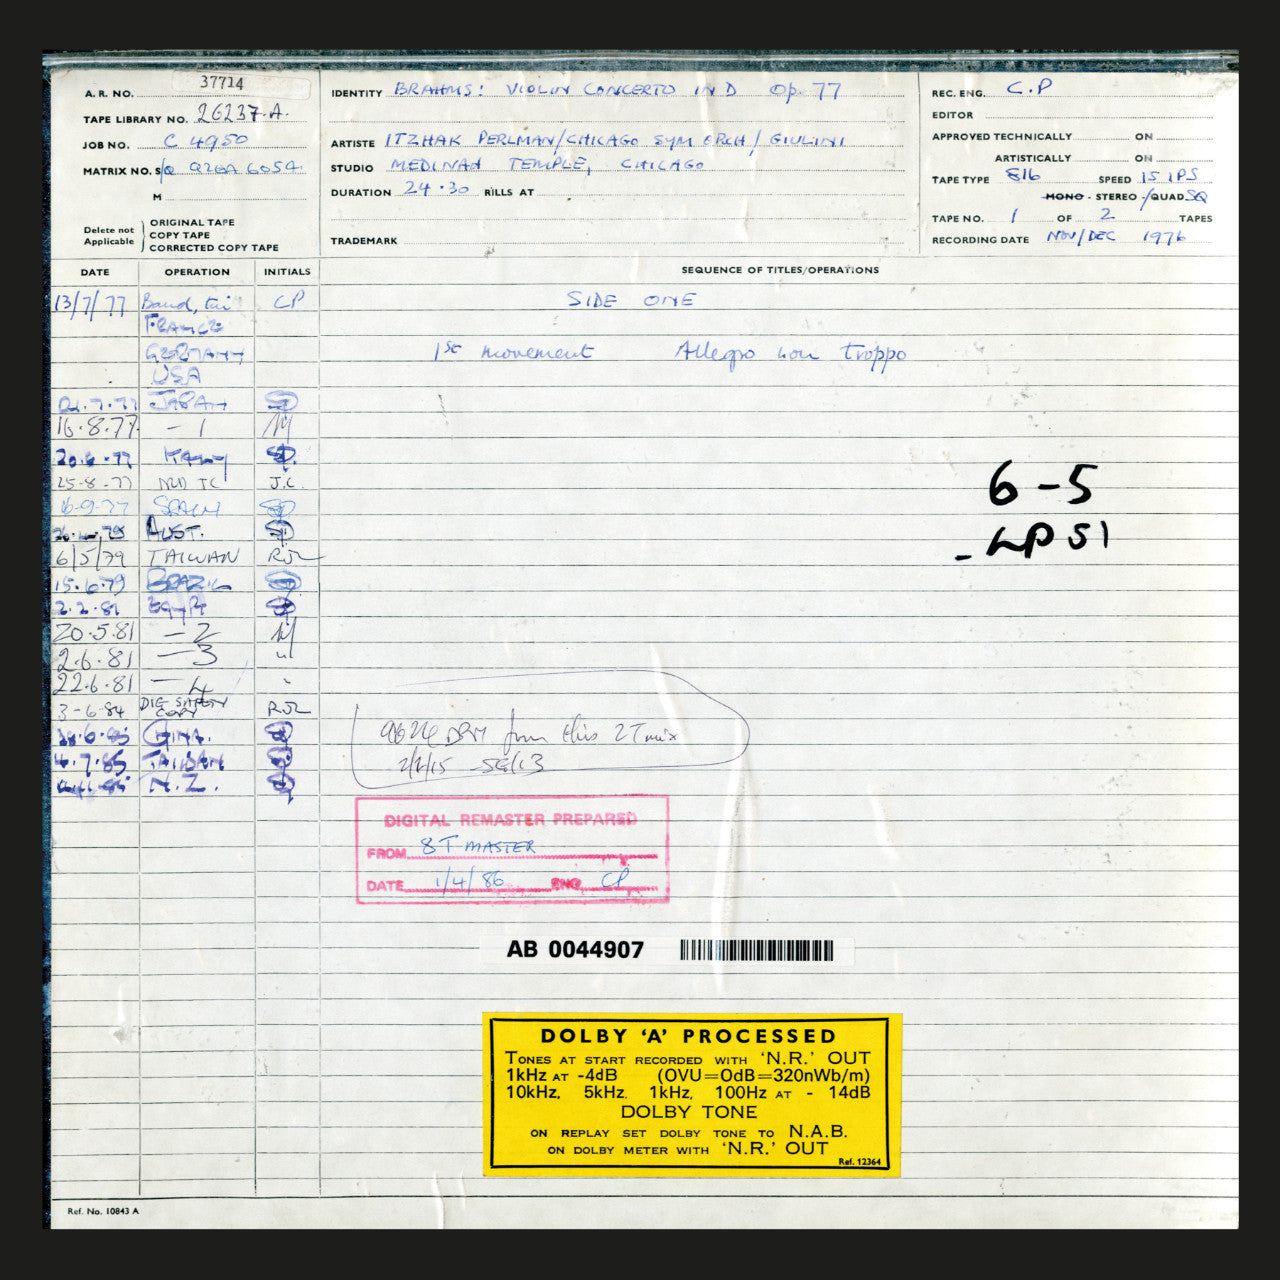 A. R. NO. 37714
TAPE LIBRARY NO. 26237.A.
JOB NO. C 4950
MATRIX NO. S/Q Q2EA 6054.
M
Delete not Applicable
ORIGINAL TAPE
COPY TAPE
CORRECTED COPY TAPE
IDENTITY BRAHMS: VIOLIN CONCERTO IN D Op. 77
ARTISTE ITZHAK PERLMAN/CHICAGO SYM ORCH/GIULINI
STUDIO MEDINAH TEMPLE, CHICAGO
DURATION 24.30 RILLS AT
TRADEMARK
REC. ENG. C.P
EDITOR
APPROVED TECHNICALLY ON
ARTISTICALLY ON
TAPE TYPE 816 SPEED 15 IPS
MONO - STEREO -/QUAD SQ
TAPE NO. 1 OF 2 TAPES
RECORDING DATE NOV/DEC 1976
DATE OPERATION INITIALS SEQUENCE OF TITLES/OPERATIONS
13/7/77 CP SIDE ONE
FRANCE
GERMANY 1st movement Allegro non troppo
USA
JAPAN
16.8.77 - 1
ITALY
25-8-77 J.C.
16-9-77 SPAIN
AUST.
6/5/79 TAIWAN RJL
15.6.79 BRAZIL
2.2.81 EGYPT
20.5.81 - 2
2.6.81 - 3
22.6.81 - 4
3-6-84 DIG SAFETY COPY RJL
CHINA.
4.7.85 TAIWAN
N.Z.
6-5
- LP S1
9624 DRM from this 2T mix
DIGITAL REMASTER PREPARED
FROM 8T MASTER
DATE 1/4/86 ENG CP
AB 0044907
DOLBY 'A' PROCESSED
TONES AT START RECORDED WITH 'N.R.' OUT
1kHz AT -4dB (OVU=OdB=320nWb/m)
10kHz, 5kHz, 1kHz, 100Hz AT - 14dB
DOLBY TONE
ON REPLAY SET DOLBY TONE TO N.A.B.
ON DOLBY METER WITH 'N.R.' OUT
Ref. 12364
Ref. No. 10843 A